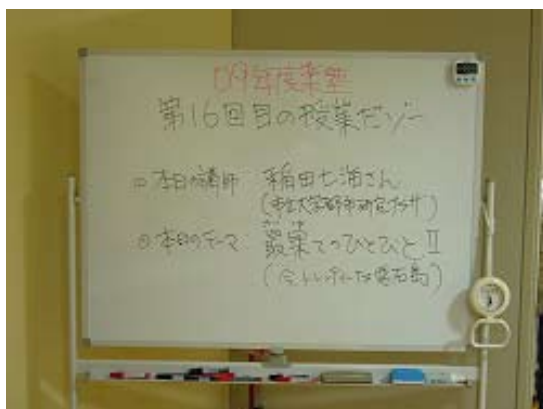 09年度楽塾
第16回目の授業だゾー
○本日の講師 稲田七海さん
(市立大学都市研究プラザ)
○本日のテーマ 最果てのひとびと II